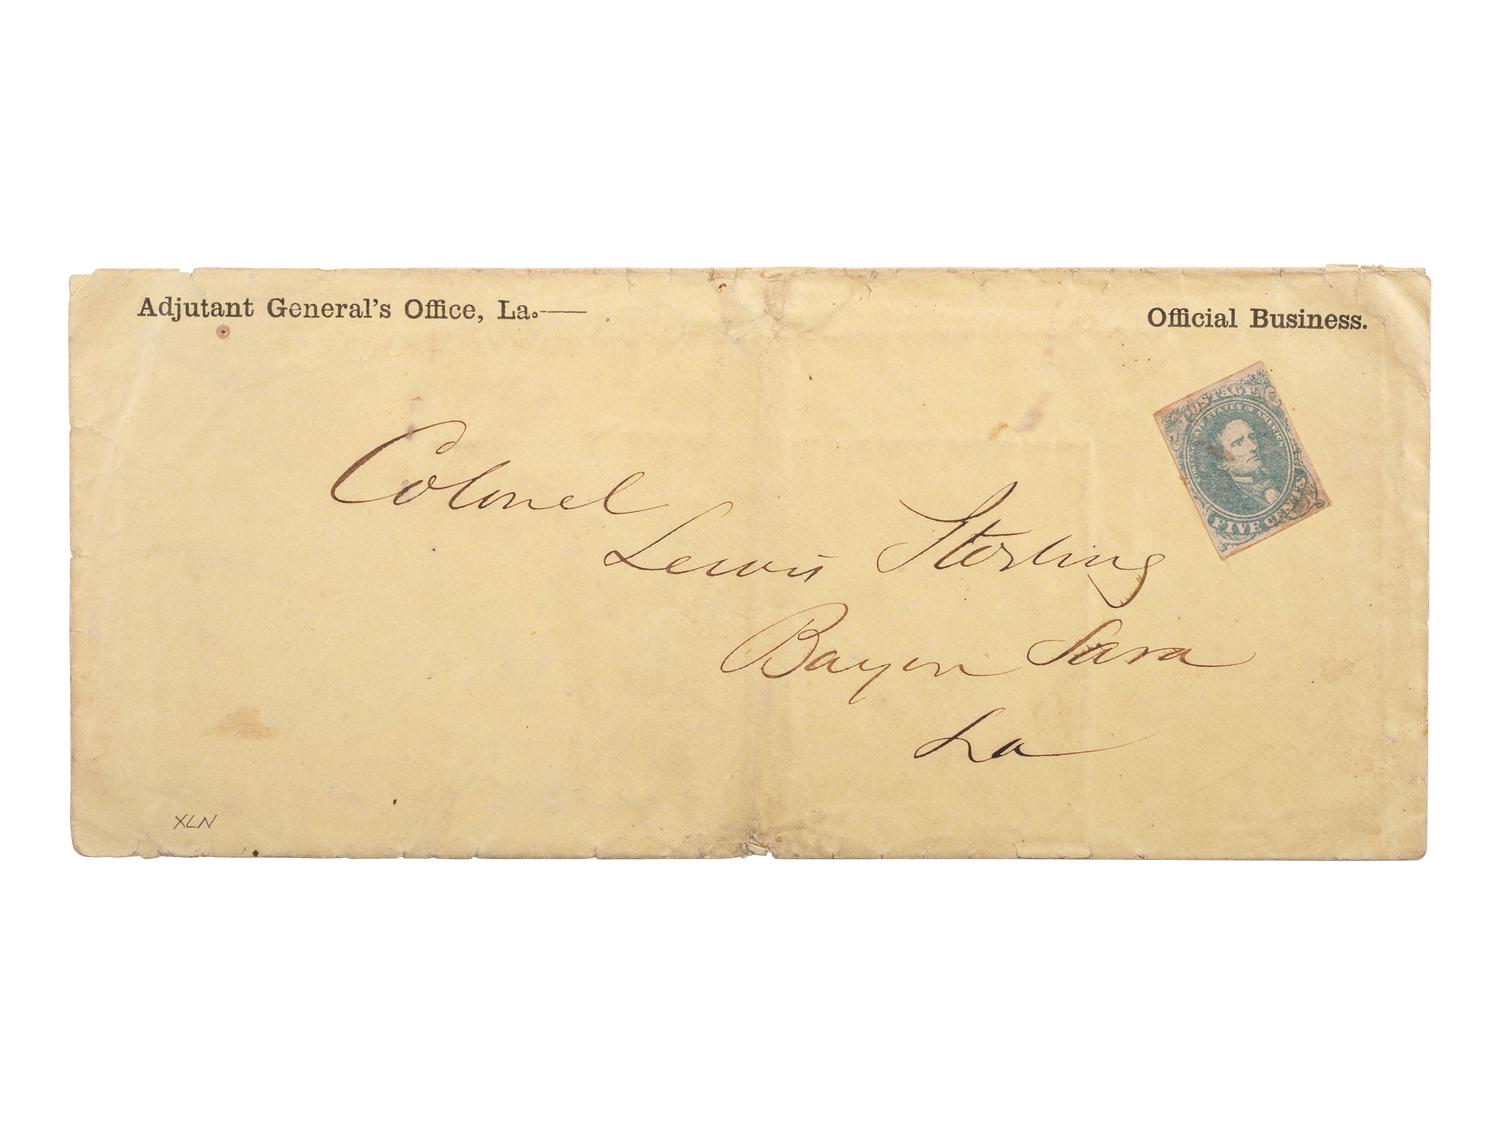 Adjutant General's Office, La.—
Official Business.
POSTAGE
STATES OF AMERICA
FIVE CENTS
Colonel
Lewis Sterling
Bayou Sara
La
XLN